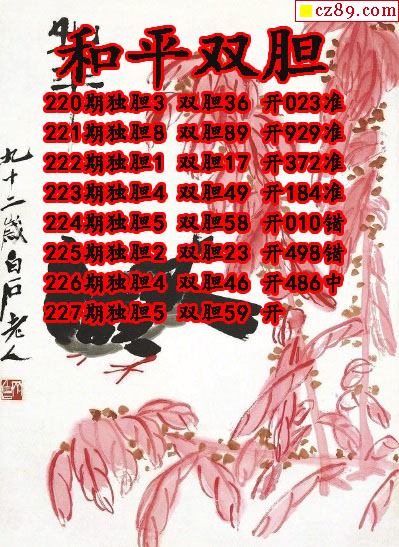 cz89.com
和平双胆
220期独胆3 双胆36 开023准
221期独胆8 双胆89 开929准
222期独胆1 双胆17 开372准
223期独胆4 双胆49 开184准
224期独胆5 双胆58 开010错
225期独胆2 双胆23 开498错
226期独胆4 双胆46 开486中
227期独胆5 双胆59 开
九十二岁白石老人